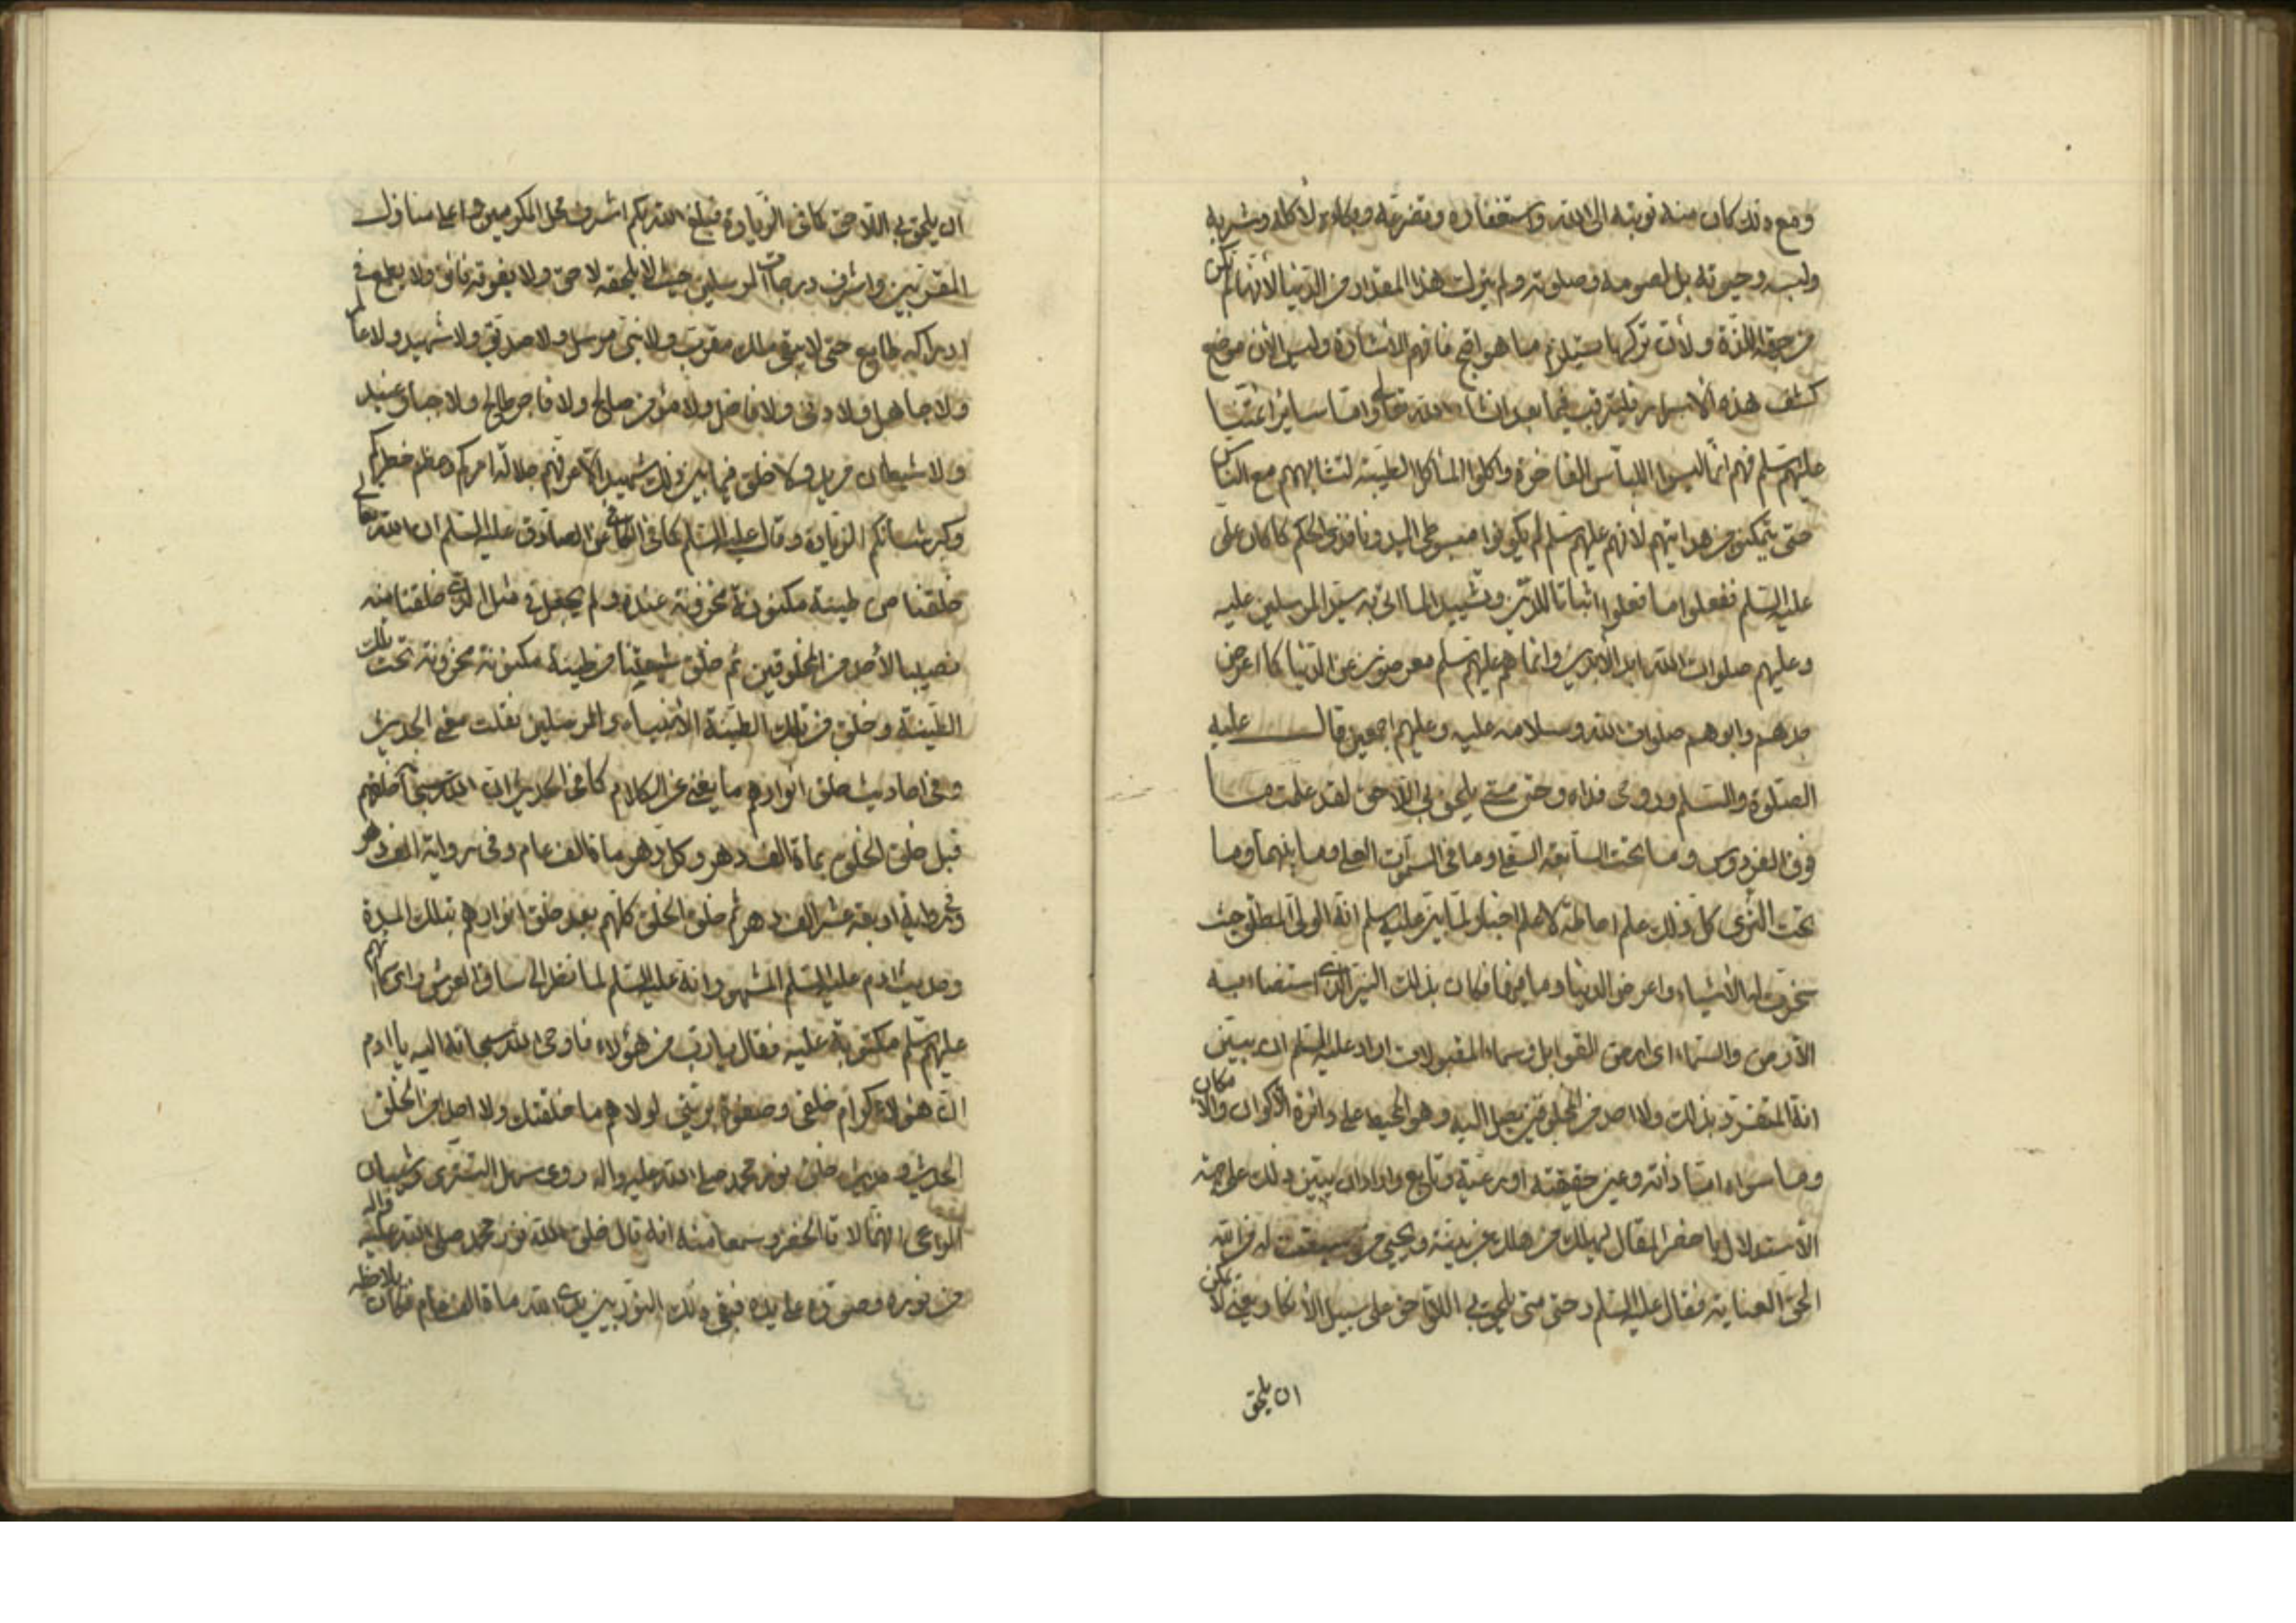 ومع ذلك كان منه توبته الى الله واستغفاره وتضرعه وبكاءه لأكله وشربه
ولبسه وحيوته بل لصومه وصلوته ولم يترك هذا المقدار من الدنيا لأنها لم تكن
من جهة اللذة ولأن تركها يستلزم ما هو اقبح فافهم الاشارة وليس الأن موضع
كشف هذه الاسرار فليترقب فيما بعد انشاء الله تعالى واما ساير ائمتنا
عليهم سلم فهم انما لبسوا اللباس الفاخرة واكلوا المأكل الطيبة لتشابههم مع الناس
حتى يتمكنو من هدايتهم لأنهم عليهم سلم لم يكونوا مبسوطى اليد ونافذى الحكم كما كان على
عليه السلم ففعلوا ما فعلوا اثباتا للدين وتشييدا لما اتى به سيد المرسلين عليه
وعليهم صلوات الله ابد الأبدين وانما هم عليهم سلم معرضون عن الدنيا كما اعرض
جدهم وابوهم صلوات الله وسلامه عليه وعليهم اجمعين قال عليه
الصلوة والسلم وروحى فداه وحتى متى يلحق بى اللاحق لقد علمت ما
فوق الفردوس وما تحت السابعة السفلى وما فى السموات العلى وما بينهما وما
تحت الثرى كل ذلك علم احاطة لا علم اخبار لما بين عليه سلم انه الولى المطلق حيث
سخرت له الأشياء واعرض الدنيا وما فيها فكان بذلك النير الذى استضاء به
الأرض والسماء اى ارض القوابل وسماء المقبولات اراد عليه السلم ان يبين
انه المتفرد بذلك ولا احد من المخلوقين يصل اليه وهو المحيط على دائرة الأكوان والأمكان
وما سواه اما ذاته وعين حقيقته او رعية وتابع واراد ان يبين ذلك على جهة
الأستدلال ايا حضر المقال ليهلك من هلك عن بينة ويحيى من سبقت له من الله
الحق العناية فقال عليه السلم وحتى متى يلحق بى اللاحق على سبيل الأنكار يعنى لا يمكن
ان يلحق
ان يلحق بى اللاحق كما فى الزيارة فبلغ الله بكم اشرف محل المكرمين واعلى منازل
المقربين واشرف درجات المرسلين حيث لا يلحقه لاحق ولا يفوقه فائق ولا يطمع فى
ادراكه طامع حتى لا يبقى ملك مقرب ولا نبى مرسل ولا صديق ولا شهيد ولا عالم
ولا جاهل ولا دنى ولا فاضل ولا مؤمن صالح ولا فاجر طالح ولا جبار عنيد
ولا شيطان مريد ولا خلق فيما بين ذلك شهيد الا عرفهم جلالة امركم وعظم خطركم
وكبر شأنكم الزيارة وقال عليه السلم كما فى الكافى عن الصادق عليه السلم ان الله تعالى
خلقنا من طينة مكنونة مخزونة عنده ولم يجعل فى مثل الذى خلقنا منه
نصيبا لأحد من المخلوقين ثم خلق شيعتنا من طينة مكنونة مخزونة تحت تلك
الطينة وخلق من تلك الطينة الأنبياء والمرسلين نقلت معنى الحديث
وفى احاديث خلق انوارهم ما يغنى عن الكلام كما فى الحديث ان الله سبحانه خلقهم
قبل خلق الخلق بمأة الف دهر وكل دهر مأة الف عام وفى رواية الف دهر
وفى رواية اربعة عشر الف دهر ثم خلق الخلق كلهم بعد خلق انوارهم بتلك المدة
وحديث ادم عليه السلم المشهور انه عليه السلم لما نظر الى ساق العرش راى اسمائهم
عليهم سلم مكتوبة عليه فقال يا رب من هؤلاء فاوحى الله سبحانه اليه يا ادم
ان هؤلاء كرام خلقى وصفوة بريتى لولا هم ما خلقتك ولا احدا من الخلق
الحديث وحديث خلق نور محمد صلى الله عليه واله روى سهل التسترى وشيبان
الراعى انهما لاقا الخضر وسمعا منه انه قال خلق الله نور محمد صلى الله عليه واله
من نوره وصوره على يده فبقى ذلك النور بين يدى الله مأة الف عام فكان يلاحظه